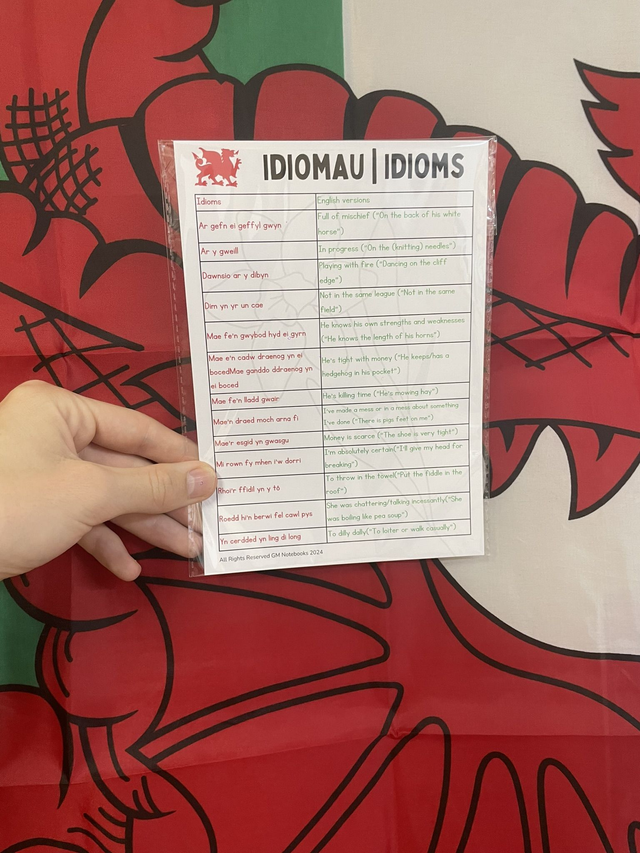 IDIOMAU | IDIOMS
Idioms
English versions
Ar gefn ei geffyl gwyn
Full of mischief ("On the back of his white
horse")
Ar y gweill
In progress ("On the (knitting) needles")
Dawnsio ar y dibyn
Playing with fire ("Dancing on the cliff
edge")
Dim yn yr un cae
Not in the same league ("Not in the same
field")
Mae fe'n gwybod hyd ei gyrn
He knows his own strengths and weaknesses
("He knows the length of his horns")
Mae e'n cadw draenog yn ei
bocedMae ganddo ddraenog yn
ei boced
He's tight with money ("He keeps/has a
hedgehog in his pocket")
Mae fe'n lladd gwair
He's killing time ("He's mowing hay")
Mae'n draed moch arna fi
I've made a mess or in a mess about something
I've done ("There is pigs feet on me")
Mae'r esgid yn gwasgu
Money is scarce ("The shoe is very tight")
Mi rown fy mhen i'w dorri
I'm absolutely certain("I'll give my head for
breaking")
Rhoi'r ffidil yn y tô
To throw in the towel("Put the fiddle in the
roof")
Roedd hi'n berwi fel cawl pys
She was chattering/talking incessantly("She
was boiling like pea soup")
Yn cerdded yn ling di long
To dilly dally("To loiter or walk casually")
All Rights Reserved GM Notebooks 2024